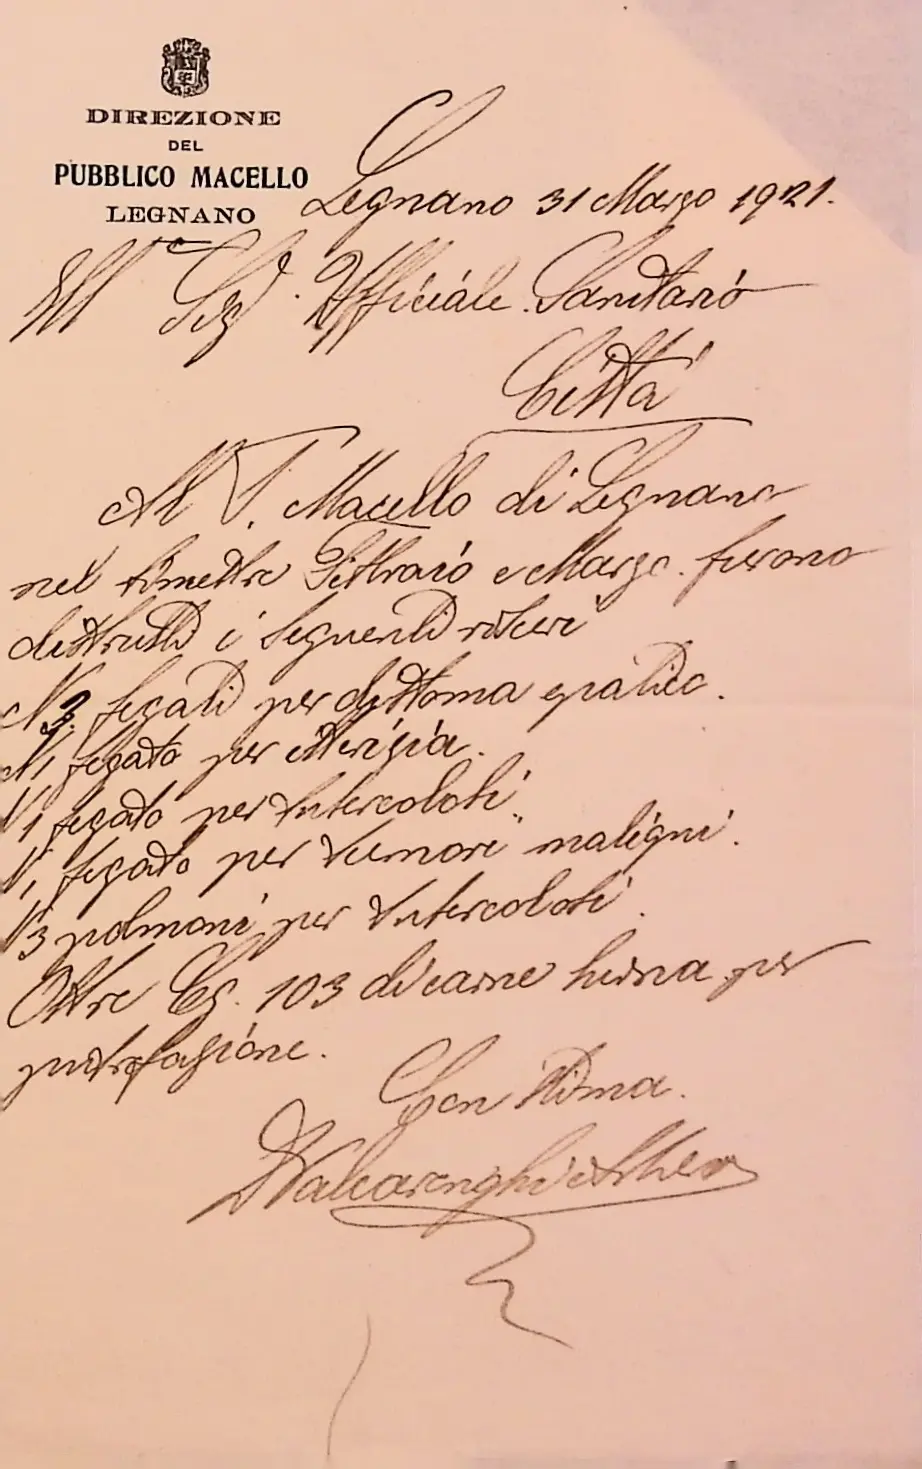 DIREZIONE
DEL
PUBBLICO MACELLO
LEGNANO
Legnano 31 Marzo 1921.
Ill Sig. Ufficiale Sanitario
Città
Al P. Macello di Legnano
nel bimestre Febbraio e Marzo furono
distrutti i seguenti visceri
N 3 fegati per distoma epatico.
N 1 fegato per itterizia.
N 1 fegato per tubercolosi.
N 1 fegato per tumori maligni.
N 3 polmoni per tubercolosi.
Oltre Cg. 103 di carne suina per
putrefazione.
Con stima.